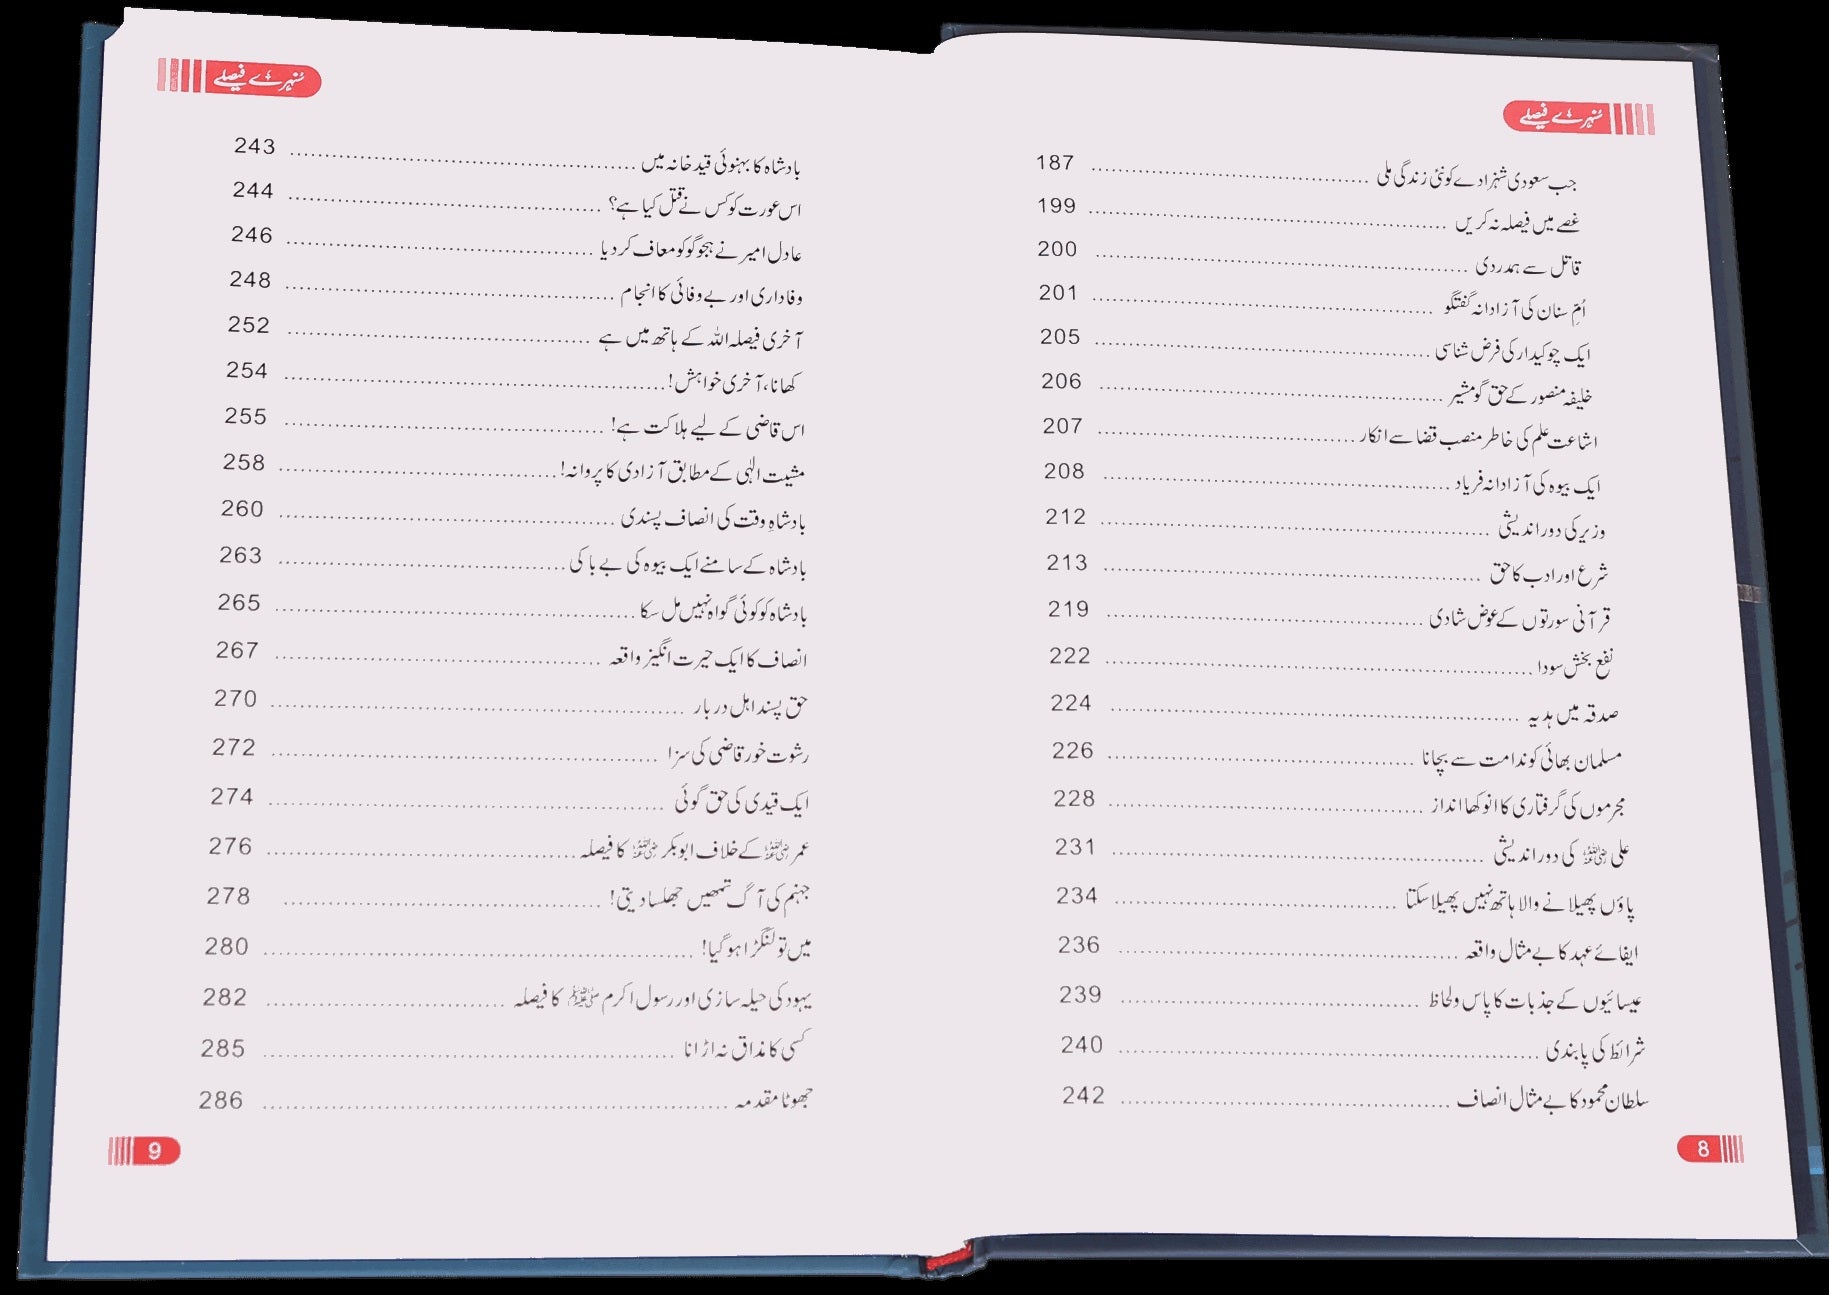 سنہرے فیصلے
جب سعودی شہزادے کو نئی زندگی ملی ........ 187
غصے میں فیصلہ نہ کریں ........ 199
قاتل سے ہمدردی ........ 200
اُمِّ سنان کی آزادانہ گفتگو ........ 201
ایک چوکیدار کی فرض شناسی ........ 205
خلیفہ منصور کے حق گو مشیر ........ 206
اشاعت علم کی خاطر منصب قضا سے انکار ........ 207
ایک بیوہ کی آزادانہ فریاد ........ 208
وزیر کی دور اندیشی ........ 212
شرع اور ادب کا حق ........ 213
قرآنی سورتوں کے عوض شادی ........ 219
نفع بخش سودا ........ 222
صدقہ میں ہدیہ ........ 224
مسلمان بھائی کو ندامت سے بچانا ........ 226
مجرموں کی گرفتاری کا انوکھا انداز ........ 228
علی رضی اللہ عنہ کی دور اندیشی ........ 231
پاؤں پھیلانے والا ہاتھ نہیں پھیلا سکتا ........ 234
ایفائے عہد کا بے مثال واقعہ ........ 236
عیسائیوں کے جذبات کا پاس ولحاظ ........ 239
شرائط کی پابندی ........ 240
سلطان محمود کا بے مثال انصاف ........ 242
8
سنہرے فیصلے
بادشاہ کا بہنوئی قید خانہ میں ........ 243
اس عورت کو کس نے قتل کیا ہے؟ ........ 244
عادل امیر نے ہجو گو کو معاف کر دیا ........ 246
وفاداری اور بے وفائی کا انجام ........ 248
آخری فیصلہ اللہ کے ہاتھ میں ہے ........ 252
کھانا، آخری خواہش! ........ 254
اس قاضی کے لیے ہلاکت ہے! ........ 255
مشیت الٰہی کے مطابق آزادی کا پروانہ! ........ 258
بادشاہِ وقت کی انصاف پسندی ........ 260
بادشاہ کے سامنے ایک بیوہ کی بے باکی ........ 263
بادشاہ کو کوئی گواہ نہیں مل سکا ........ 265
انصاف کا ایک حیرت انگیز واقعہ ........ 267
حق پسند اہل دربار ........ 270
رشوت خور قاضی کی سزا ........ 272
ایک قیدی کی حق گوئی ........ 274
عمر رضی اللہ عنہ کے خلاف ابوبکر رضی اللہ عنہ کا فیصلہ ........ 276
جہنم کی آگ تمھیں جھلسا دیتی! ........ 278
میں تو لنگڑا ہو گیا! ........ 280
یہود کی حیلہ سازی اور رسول اکرم ﷺ کا فیصلہ ........ 282
کسی کا مذاق نہ اڑانا ........ 285
جھوٹا مقدمہ ........ 286
9